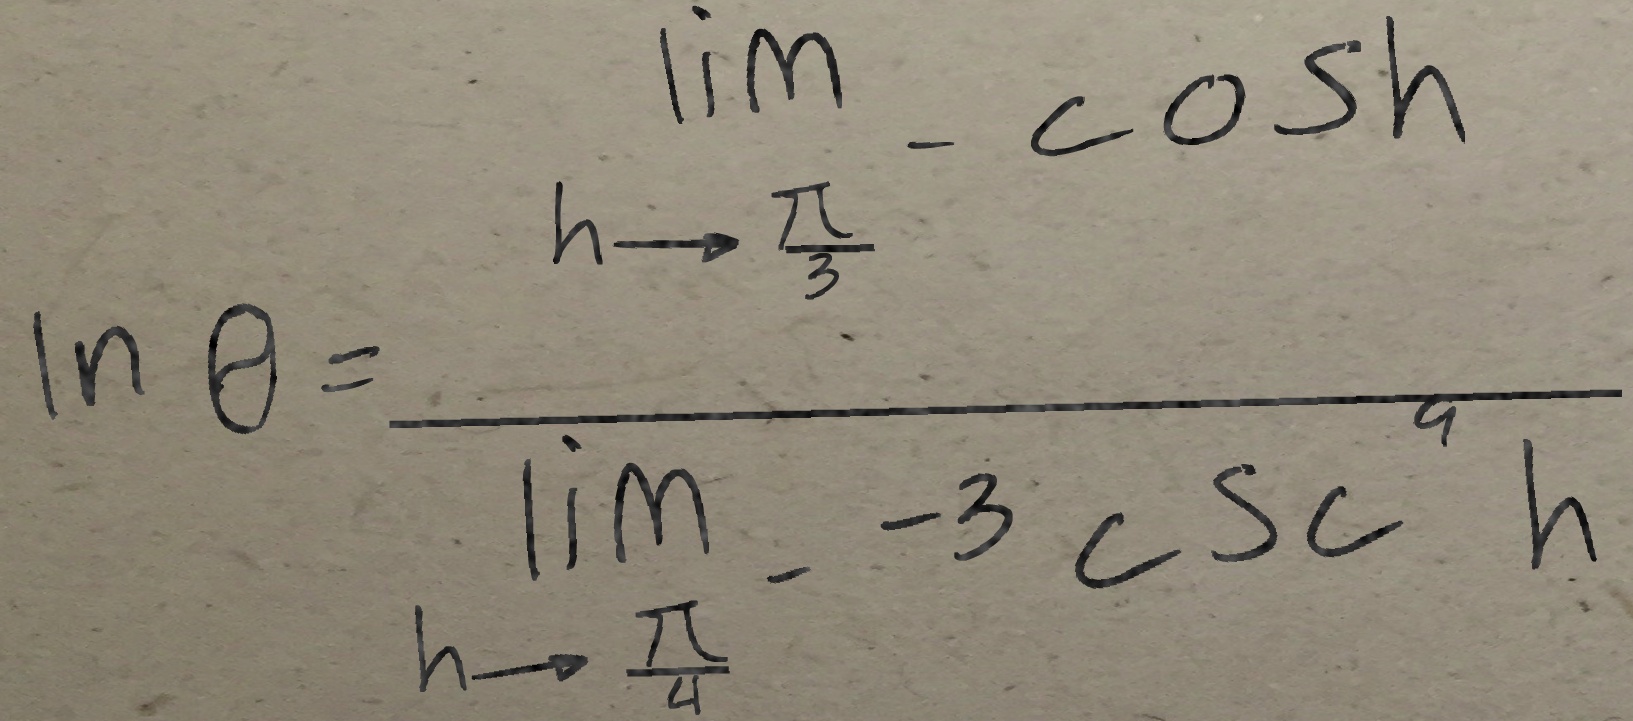 ln θ = \frac{\lim_{h \to \frac{π}{3}^-} cos h}{\lim_{h \to \frac{π}{4}^-} -3 csc^9 h}